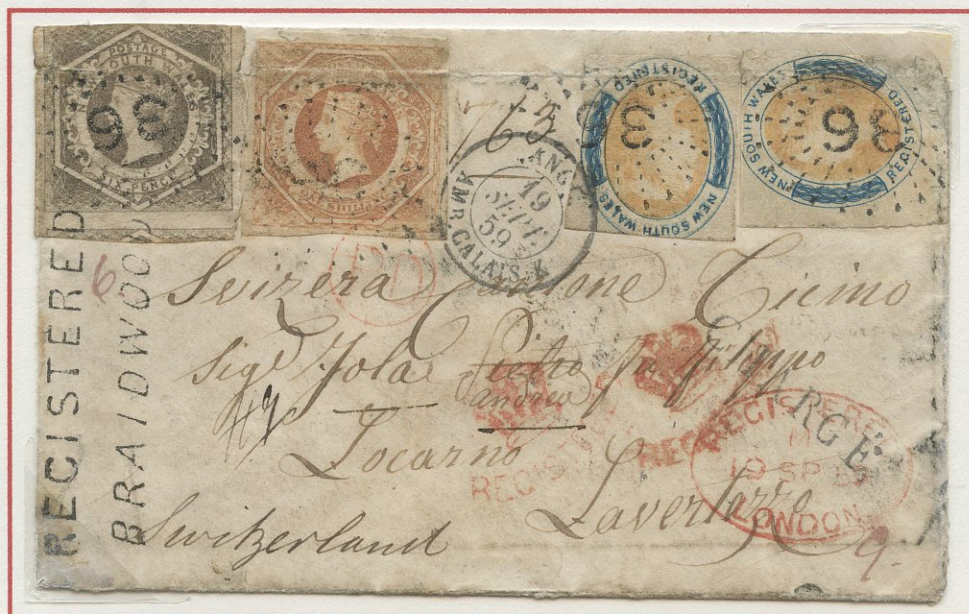 POSTAGE
SOUTH WALES
SIX PENCE
36
REGISTERED
NEW SOUTH WALES
3
NEW SOUTH WALES
REGISTERED
36
ANGL.
19
SEPT.
59
AMB. CALAIS. K
PD
6
REGISTERED
BRAIDWOOD
Svizera Cantone Ticino
Sigr Jola Pietro fu Filippo
andrea
Locarno
Lavertezzo
Switzerland
CHARGE
REGISTERED
REGISTERED
REGISTERED
19 SP 59
LONDON
9